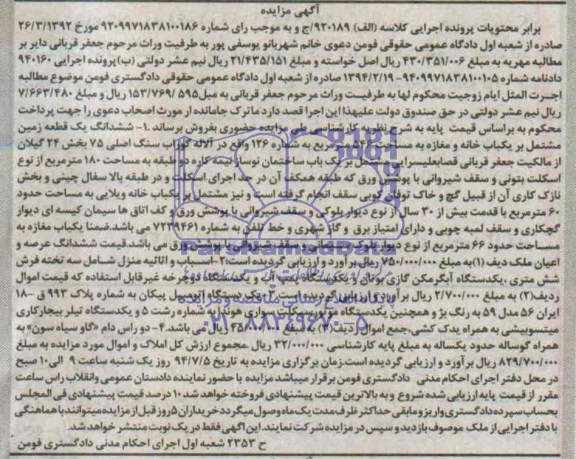 آگهی مزایده
برابر محتویات پرونده اجرایی کلاسه (الف) ۹۲۰۱۸۹/ج و به موجب رای شماره ۹۲۰۹۹۷۱۸۳۸۱۰۰۱۸۶ مورخ ۲۶/۳/۱۳۹۲
صادره از شعبه اول دادگاه عمومی حقوقی فومن دعوی خانم شهربانو یوسفی پور به طرفیت وراث مرحوم جعفر قربانی دایر بر
مطالبه مهریه به مبلغ ۴۳۰/۳۵۱/۰۰۶ ریال اصل خواسته و مبلغ ۲۱/۴۳۵/۱۵۱ ریال نیم عشر دولتی (ب)پرونده اجرایی ۹۴۰۱۶۰
دادنامه شماره ۹۴۰۹۹۷۱۸۳۸۱۰۰۱۰۵-۱۳۹۴/۲/۱۹ صادره از شعبه اول دادگاه عمومی حقوقی دادگستری فومن موضوع مطالبه
اجرت المثل ایام زوجیت محکوم لها به طرفیت وراث مرحوم جعفر قربانی به مبلغ ۱۵۳/۷۶۹/۵۹۵ ریال و مبلغ ۷/۶۶۳/۴۸۰
ریال نیم عشر دولتی در حق صندوق دولت علیهذا این اجرا قصد دارد ماترک جامانده از مورث اصحاب دعوی را جهت پرداخت
محکوم به براساس قیمت پایه به شرح نظریه کارشناسی طی مزایده حضوری بفروش برساند.۱- ششدانگ یک قطعه زمین
مشتمل بر یکباب خانه و مغازه به مساحت مترمربع به شماره ۱۲۶ واقع در آلاله گوراب سنگ اصلی ۷۵ بخش ۲۴ گیلان
از مالکیت جعفر قربانی بر یک باب ساختمان نوساز نیمه کاره دو طبقه به مساحت ۱۸۰ مترمربع از نوع
اسکلت بتونی و سقف شیروانی با پوشش ورق که طبقه همکف آن در حد اجرای اسکلت و در طبقه بالا سفال چینی و بخش
نازک کاری آن از قبیل گچ و خاک توفال کوبی سقف انجام گرفته است و نیز مشتمل بر یکباب خانه ویلایی به مساحت حدود
۶۰ مترمربع با قدمت بیش از ۳۰ سال از نوع دیوار بلوکی و سقف شیروانی با پوشش ورق و کف اتاق ها سیمان کیسه ای دیوار
گچکاری و سقف لمبه چوبی و دارای امتیاز برق و گاز شهری و خط تلفن به شماره ۷۲۲۹۴۶۱ می باشد.ضمنا یکباب مغازه به
مساحت حدود ۶۶ مترمربع از نوع دیوار بلوک سیمانی و سقف شیروانی با پوشش ورق می باشد.قیمت ششدانگ عرصه و
اعیان ملک دیف (۱)به مبلغ ۷۵۰/۰۰۰/۰۰۰ ریال برآورد و ارزیابی گردیده است:۲-اسباب و اثاثیه منزل شامل سه تخته فرش
شش متری،یکدستگاه آبگرمکن گازی بوتان و یکدستگاه پمپ آب و یکدستگاه دوچرخه غیرقابل استفاده که قیمت اموال
ردیف(۲) به مبلغ ۲/۷۰۰/۰۰۰ ریال برآورد و ارزیابی گردیده یکدستگاه اتومبیل پیکان به شماره پلاک ۹۹۳ ق -۱۸
ایران ۵۶ مدل ۵۹ به رنگ بژ و همچنین یکدستگاه موتورسیکلت سواری هوندا به شماره رشت ۵ و یکدستگاه تیلر بیجارکاری
میتسوبیشی به همراه یدک کشی،جمع اموال ردیف ریال می باشد.۴- دو راس دام «گاو سیاه سون» به
همراه گوساله حدود یکساله به مبلغ پایه کارشناسی ۳۲/۰۰۰/۰۰۰ ریال .مجموع ارزش کل املاک و اموال مورد مزایده به مبلغ
۸۲۹/۷۰۰/۰۰۰ ریال برآورد و ارزیابی گردیده است.زمان برگزاری مزایده به تاریخ ۹۴/۷/۵ روز یک شنبه ساعت ۹ الی ۱۰ صبح
در محل دفتر اجرای احکام مدنی دادگستری فومن برقرار میباشد مزایده با حضور نماینده دادستان عمومی وانقلاب راس ساعت
مقرر از قیمت پایه ارزیابی شده شروع و به بالاترین قیمت پیشنهادی فروخته خواهد شد۱۰ درصد قیمت پیشنهادی فی المجلس
بحساب سپرده دادگستری واریز و مابقی حداکثر ظرف مدت یک ماه وصول میگردد خریداران ۵روز قبل از مزایده میتوانند با هماهنگی
با دفتر اجرایی از ملک موصوف بازدید و سپس در مزایده شرکت نمایند.این آگهی فقط در یک نوبت منتشر خواهد شد.
ح ۲۳۵۳ شعبه اول اجرای احکام مدنی دادگستری فومن